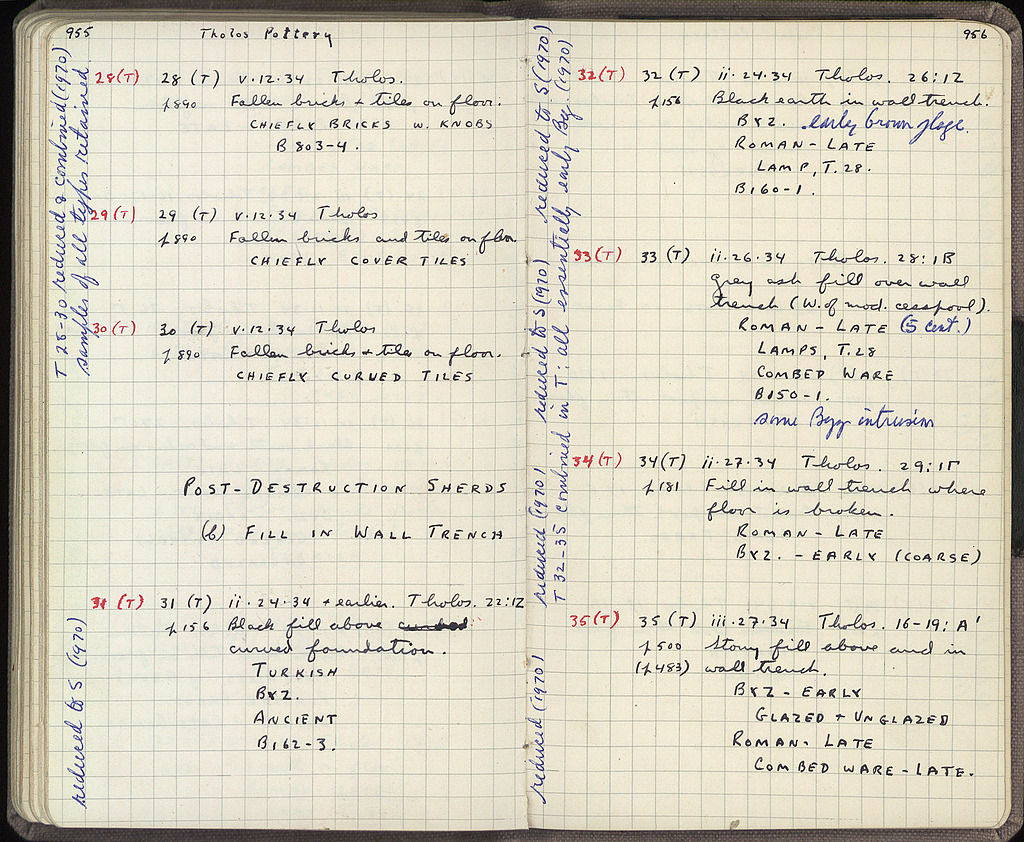 955
Tholos Pottery
28(T) 28 (T) v.12.34 Tholos.
p890 Fallen bricks + tiles on floor.
CHIEFLY BRICKS W. KNOBS
B 803-4.
29(T) 29 (T) v.12.34 Tholos
p890 Fallen bricks and tiles on floor
CHIEFLY COVER TILES
30(T) 30 (T) v.12.34 Tholos
p890 Fallen bricks + tiles on floor.
CHIEFLY CURVED TILES
T 28-30 reduced & combined (1970)
samples of all types retained.
POST-DESTRUCTION SHERDS
(b) FILL IN WALL TRENCH
31 (T) 31 (T) ii.24.34 + earlier. Tholos. 22:IZ
p156 Black fill above
curved foundation.
TURKISH
BYZ.
ANCIENT
B162-3.
reduced to S (1970)
956
32(T) 32 (T) ii.24.34 Tholos. 26:IZ
p156 Black earth in wall trench.
BYZ. early brown glaze.
ROMAN-LATE
LAMP, T.28.
B160-1.
reduced to S (1970)
33(T) 33 (T) ii.26.34 Tholos. 28:IB
Grey ash fill over wall
trench (W. of mod. cesspool).
ROMAN-LATE (5 cent.)
LAMPS, T.28
COMBED WARE
B150-1.
some Byz intrusion
reduced to S (1970)
34(T) 34(T) ii.27.34 Tholos. 29:IΓ
p181 Fill in wall trench where
floor is broken.
ROMAN-LATE
BYZ. - EARLY (COARSE)
reduced (1970)
35(T) 35 (T) iii.27.34 Tholos. 16-19: A'
p500 Stony fill above and in
(p483) wall trench.
BYZ-EARLY
GLAZED + UNGLAZED
ROMAN-LATE
COMBED WARE-LATE.
reduced (1970)
T 32-35 combined in T: all essentially early Byz. (1970)